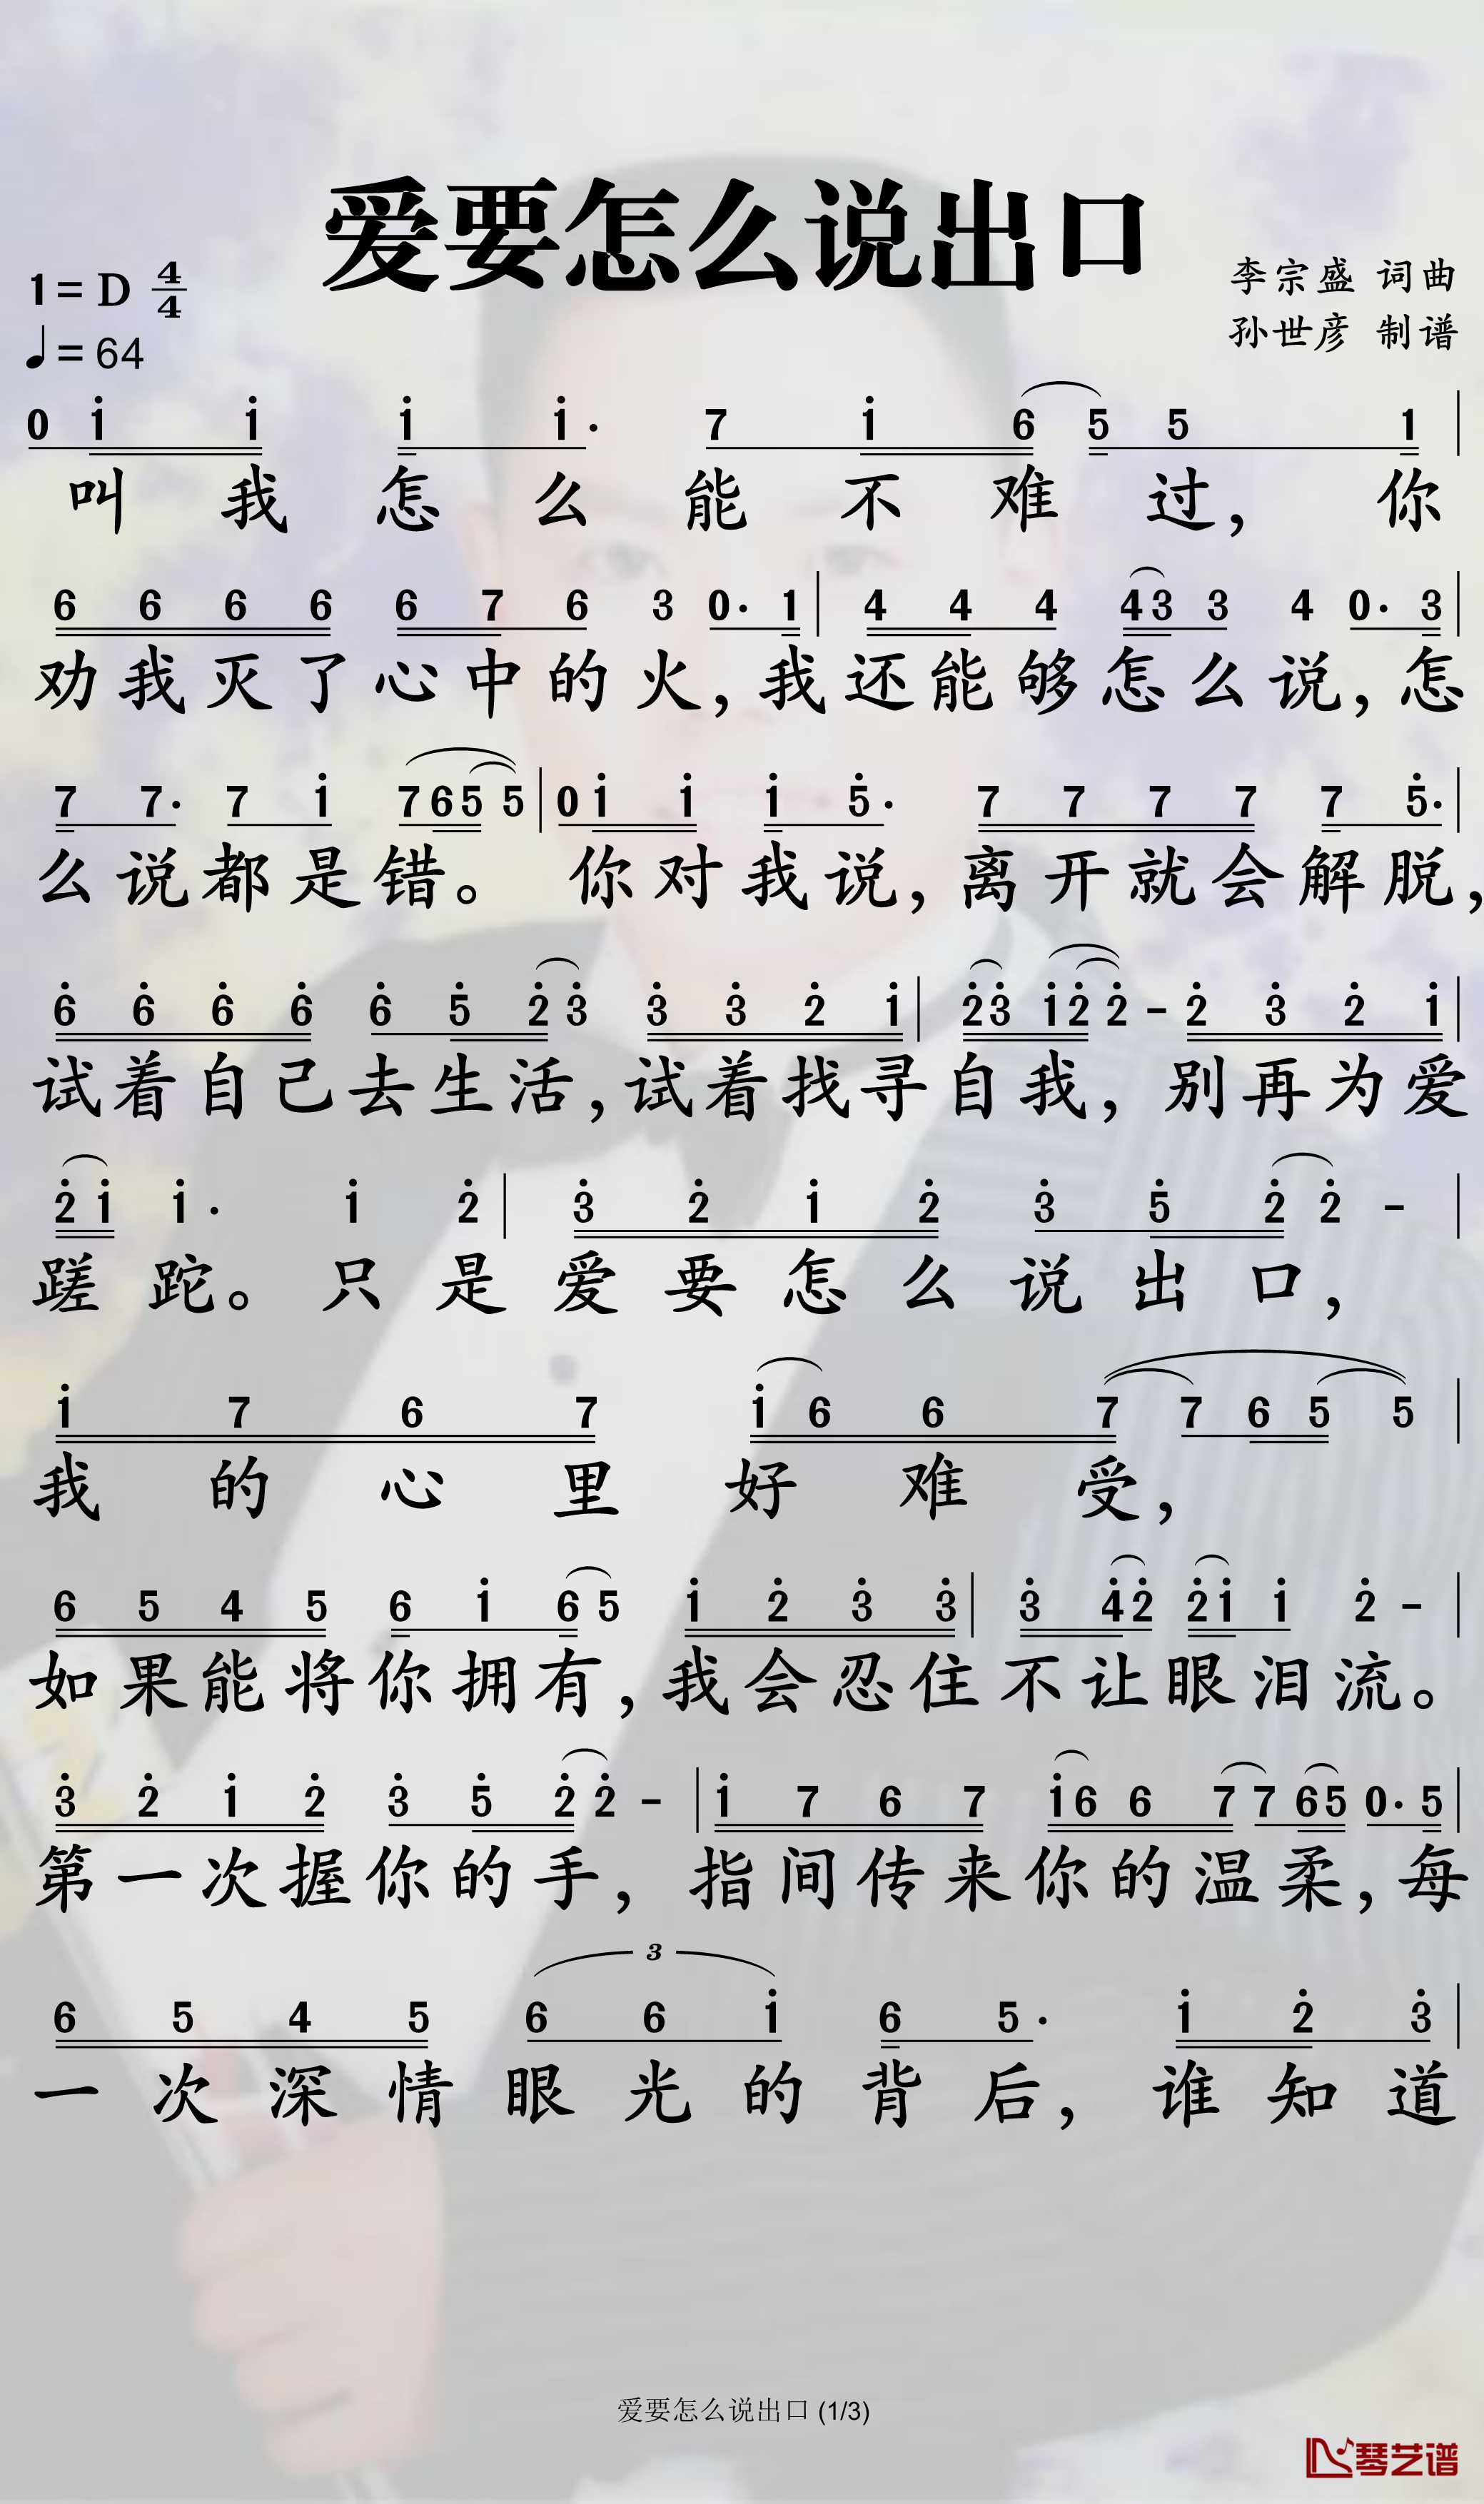 爱要怎么说出口
1=D 4/4
李宗盛 词曲
♩=64
孙世彦 制谱
0 i̇ i̇ i̇ i̇· 7 i̇ 6 5 5 1 |
叫我怎么能不难过，你
6 6 6 6 6 7 6 3 0· 1 | 4 4 4 4 3 3 4 0· 3 |
劝我灭了心中的火，我还能够怎么说，怎
7 7· 7 i̇ 7 6 5 5 | 0 i̇ i̇ i̇ 5̇· 7 7 7 7 7 5̇· |
么说都是错。你对我说，离开就会解脱，
6̇ 6̇ 6̇ 6̇ 6̇ 5̇ 2̇ 3̇ 3̇ 3̇ 2̇ i̇ | 2̇ 3̇ i̇ 2̇ 2̇ - 2̇ 3̇ 2̇ i̇ |
试着自己去生活，试着找寻自我，别再为爱
2̇ i̇ i̇· i̇ 2̇ | 3̇ 2̇ i̇ 2̇ 3̇ 5̇ 2̇ 2̇ - |
蹉跎。只是爱要怎么说出口，
i̇ 7 6 7 i̇ 6 6 7 7 6 5 5 |
我的心里好难受，
6 5 4 5 6 i̇ 6 5 i̇ 2̇ 3̇ 3̇ | 3̇ 4̇ 2̇ 2̇ i̇ i̇ 2̇ - |
如果能将你拥有，我会忍住不让眼泪流。
3̇ 2̇ i̇ 2̇ 3̇ 5̇ 2̇ 2̇ - | i̇ 7 6 7 i̇ 6 6 7 7 6 5 0· 5 |
第一次握你的手，指间传来你的温柔，每
3
6 5 4 5 6 6 i̇ 6 5· i̇ 2̇ 3̇ |
一次深情眼光的背后，谁知道
爱要怎么说出口 (1/3)
琴艺谱